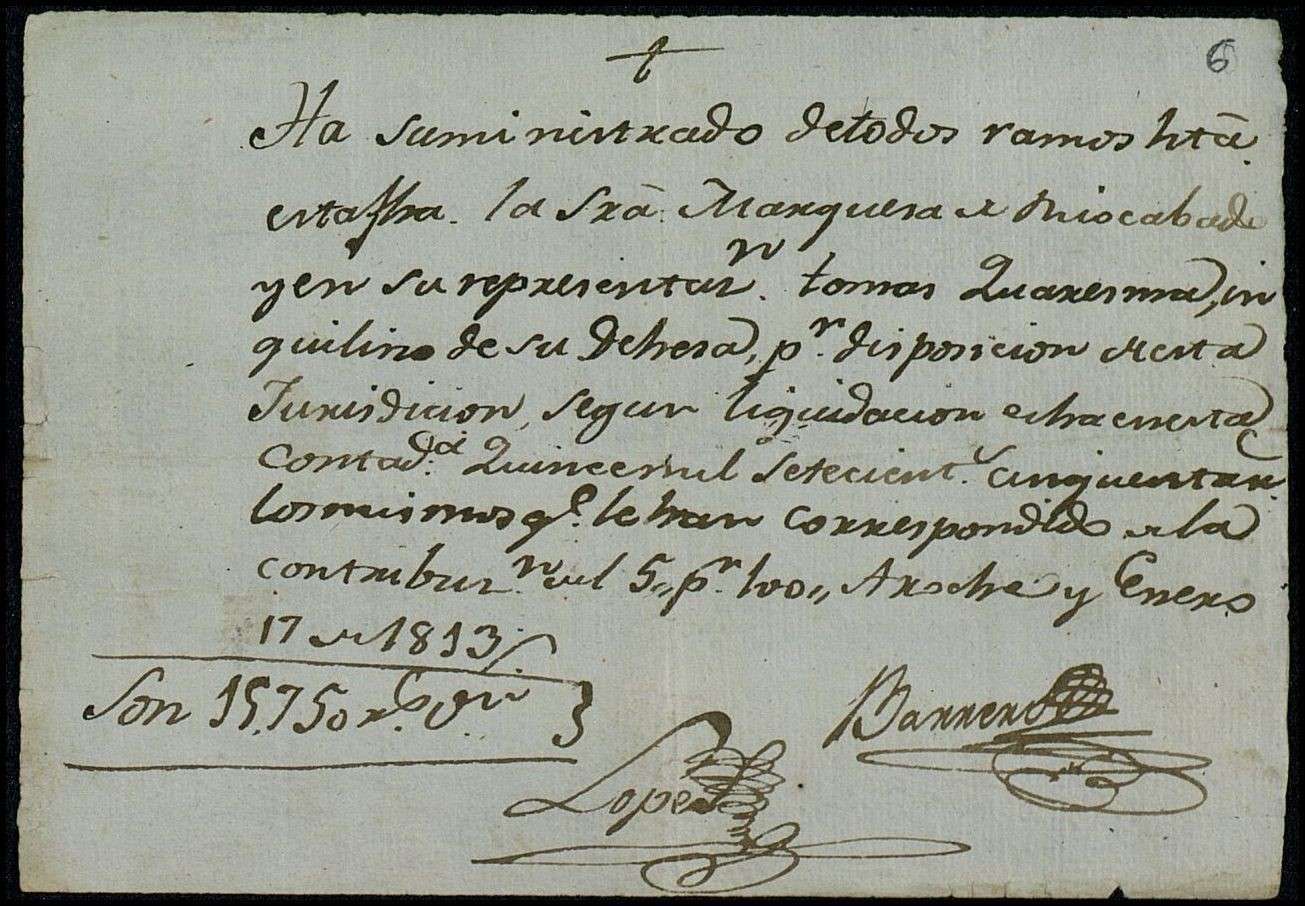 6
Ha suministrado detodos ramos htã.
estafha. la Srã. Marquesa de Riocabado
yen su representn. tomas Quaresma, in
quilino de su Dehesa, pr. disposicion deesta
Jurisdicion, segun liquidacion echa enesta
Contadã. Quincemil setecients. cinquentarr.
losmismos qe. le han correspondido a la
contribucn. del 5,, pr. 100,, Aroche y Enero
17 de 1813.
Son 15.750 rs. vn
Barrero
Lopez